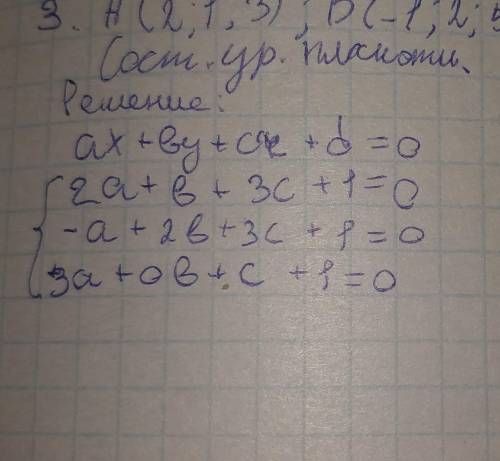 3. A(2;1;3); B(-1;2;3
Сост. ур. плакоти.
Решение:
ax+by+cz+d=0
2a+b+3c+1=0
-a+2b+3c+1=0
3a+0b+c+1=0